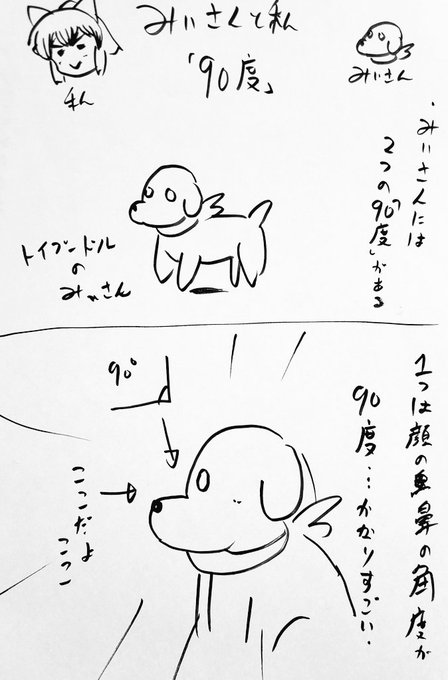 みいさんと私
「90度」
私
みいさん
みいさんには
2つの「90度」がある
トイプードル
の
みいさん
1つは顔の鼻の角度が
90度…かなりすごい.
90°
ここだよ
ここ